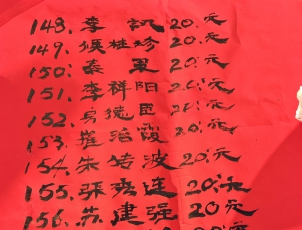 148. 李 凯 20.元
149. 侯桂珍 20.元
150. 秦 军 20.元
151. 李祥阳 20.元
152. 德臣 20.元
153. 崔治霞 20.元
154. 朱 波 20.元
155. 张秀连 20.元
156. 苏建强 20元